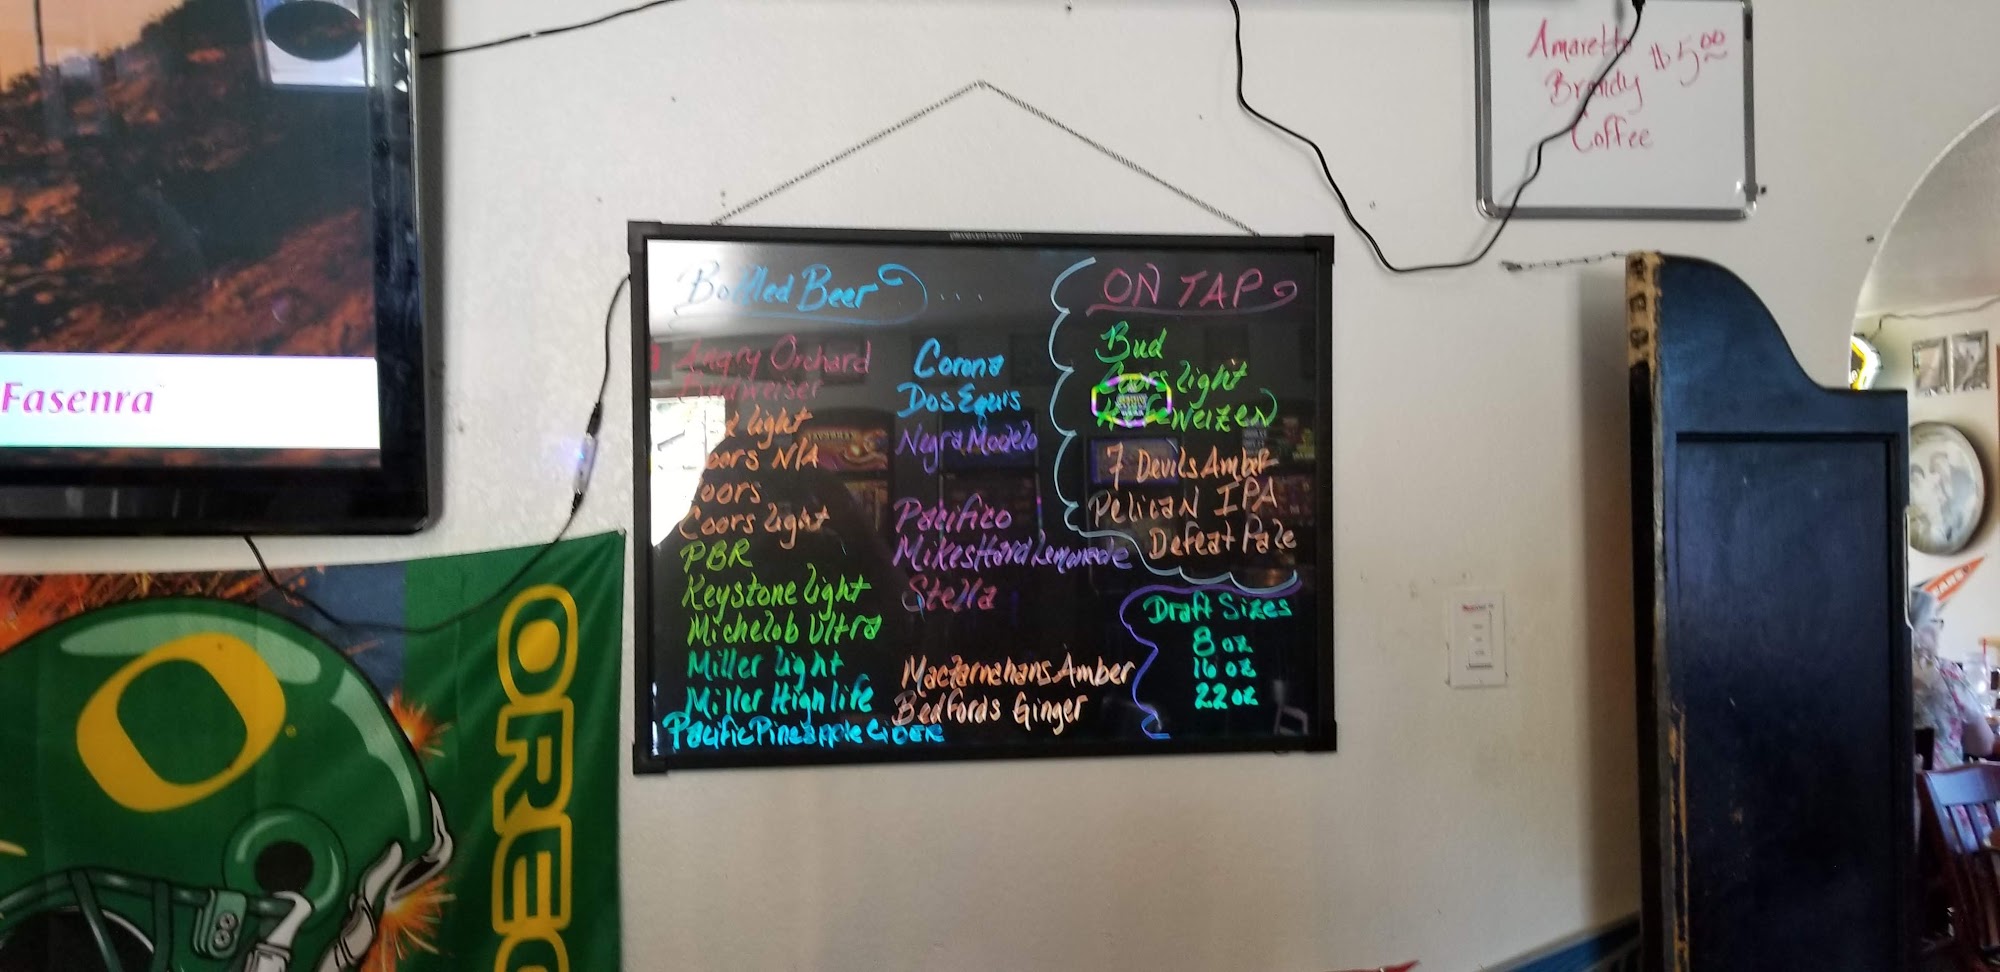 Fasenra
OREG
Bottled Beer ....
Angry Orchard
Budweiser
light
Coors N/A
Coors
Coors light
PBR
Keystone light
Michelob Ultra
Miller light
Miller High life
Pacific Pineapple CIDER
Corona
Dos Equis
Negra Modelo
Pacifico
Mikes Hard Lemonade
Stella
MacTarnahans Amber
Bedfords Ginger
ON TAP
Bud
Coors light
Hefeweizen
7 Devils Amber
Pelican IPA
Defeat Pale
Draft Sizes
8 oz
16 oz
22 oz
Amaretto $5.00
Brandy
Coffee